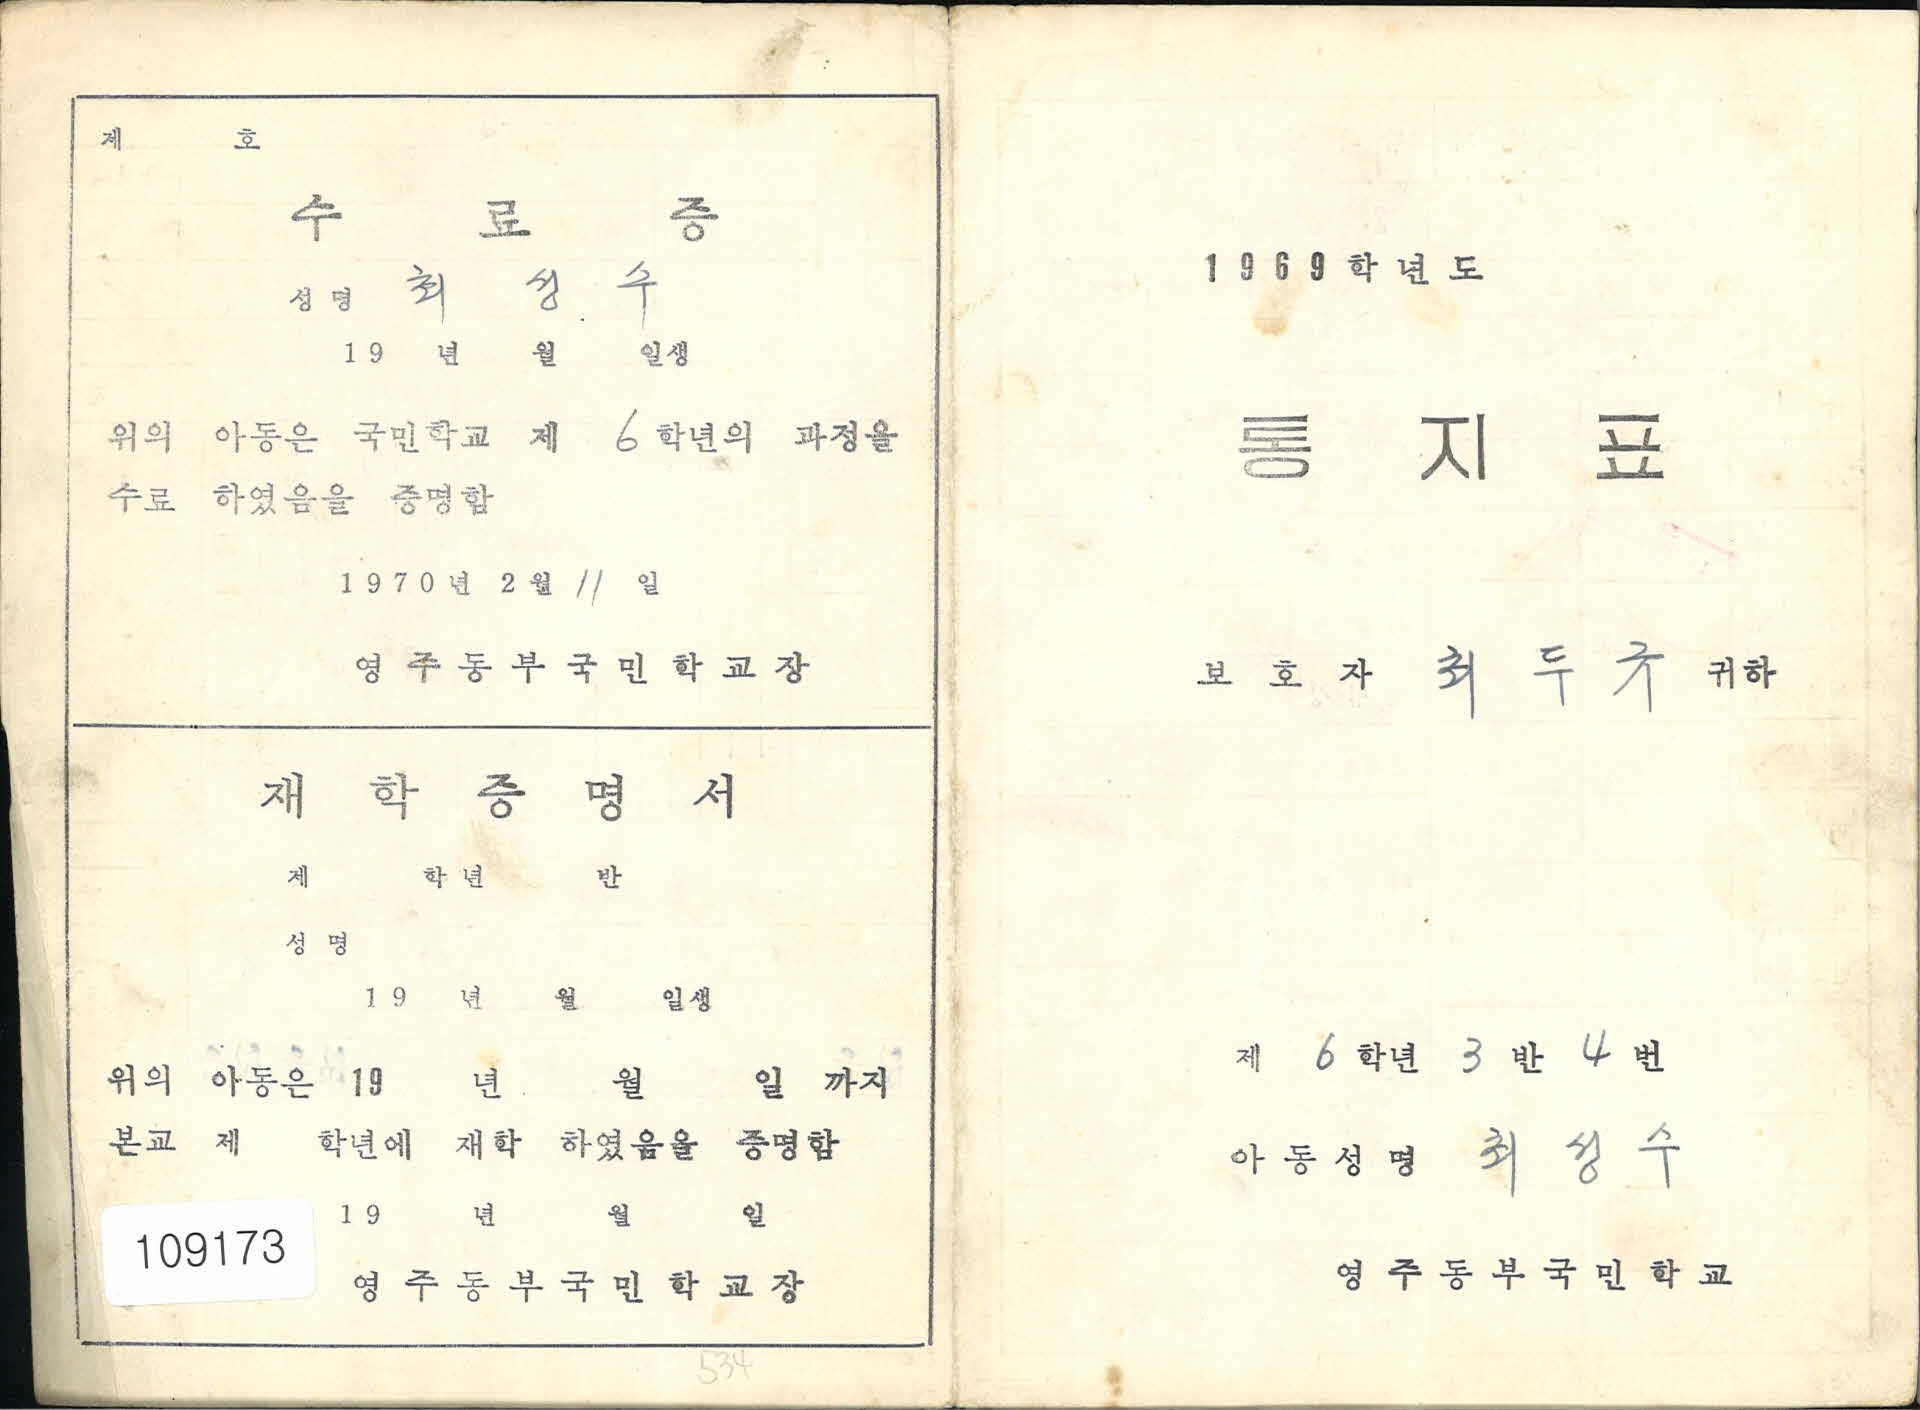 제 호
수 료 증
성명 최 성 수
19 년 월 일생
위의 아동은 국민학교 제 6 학년의 과정을
수료 하였음을 증명함
1970년 2월 11 일
영주동부국민학교장
재 학 증 명 서
제 학년 반
성명
19 년 월 일생
위의 아동은 19 년 월 일 까지
본교 제 학년에 재학 하였음을 증명함
19 년 월 일
109173
영주동부국민학교장
534
1969학년도
통 지 표
보 호 자 최 두 규 귀하
제 6 학년 3 반 4 번
아동성명 최 성 수
영주동부국민학교